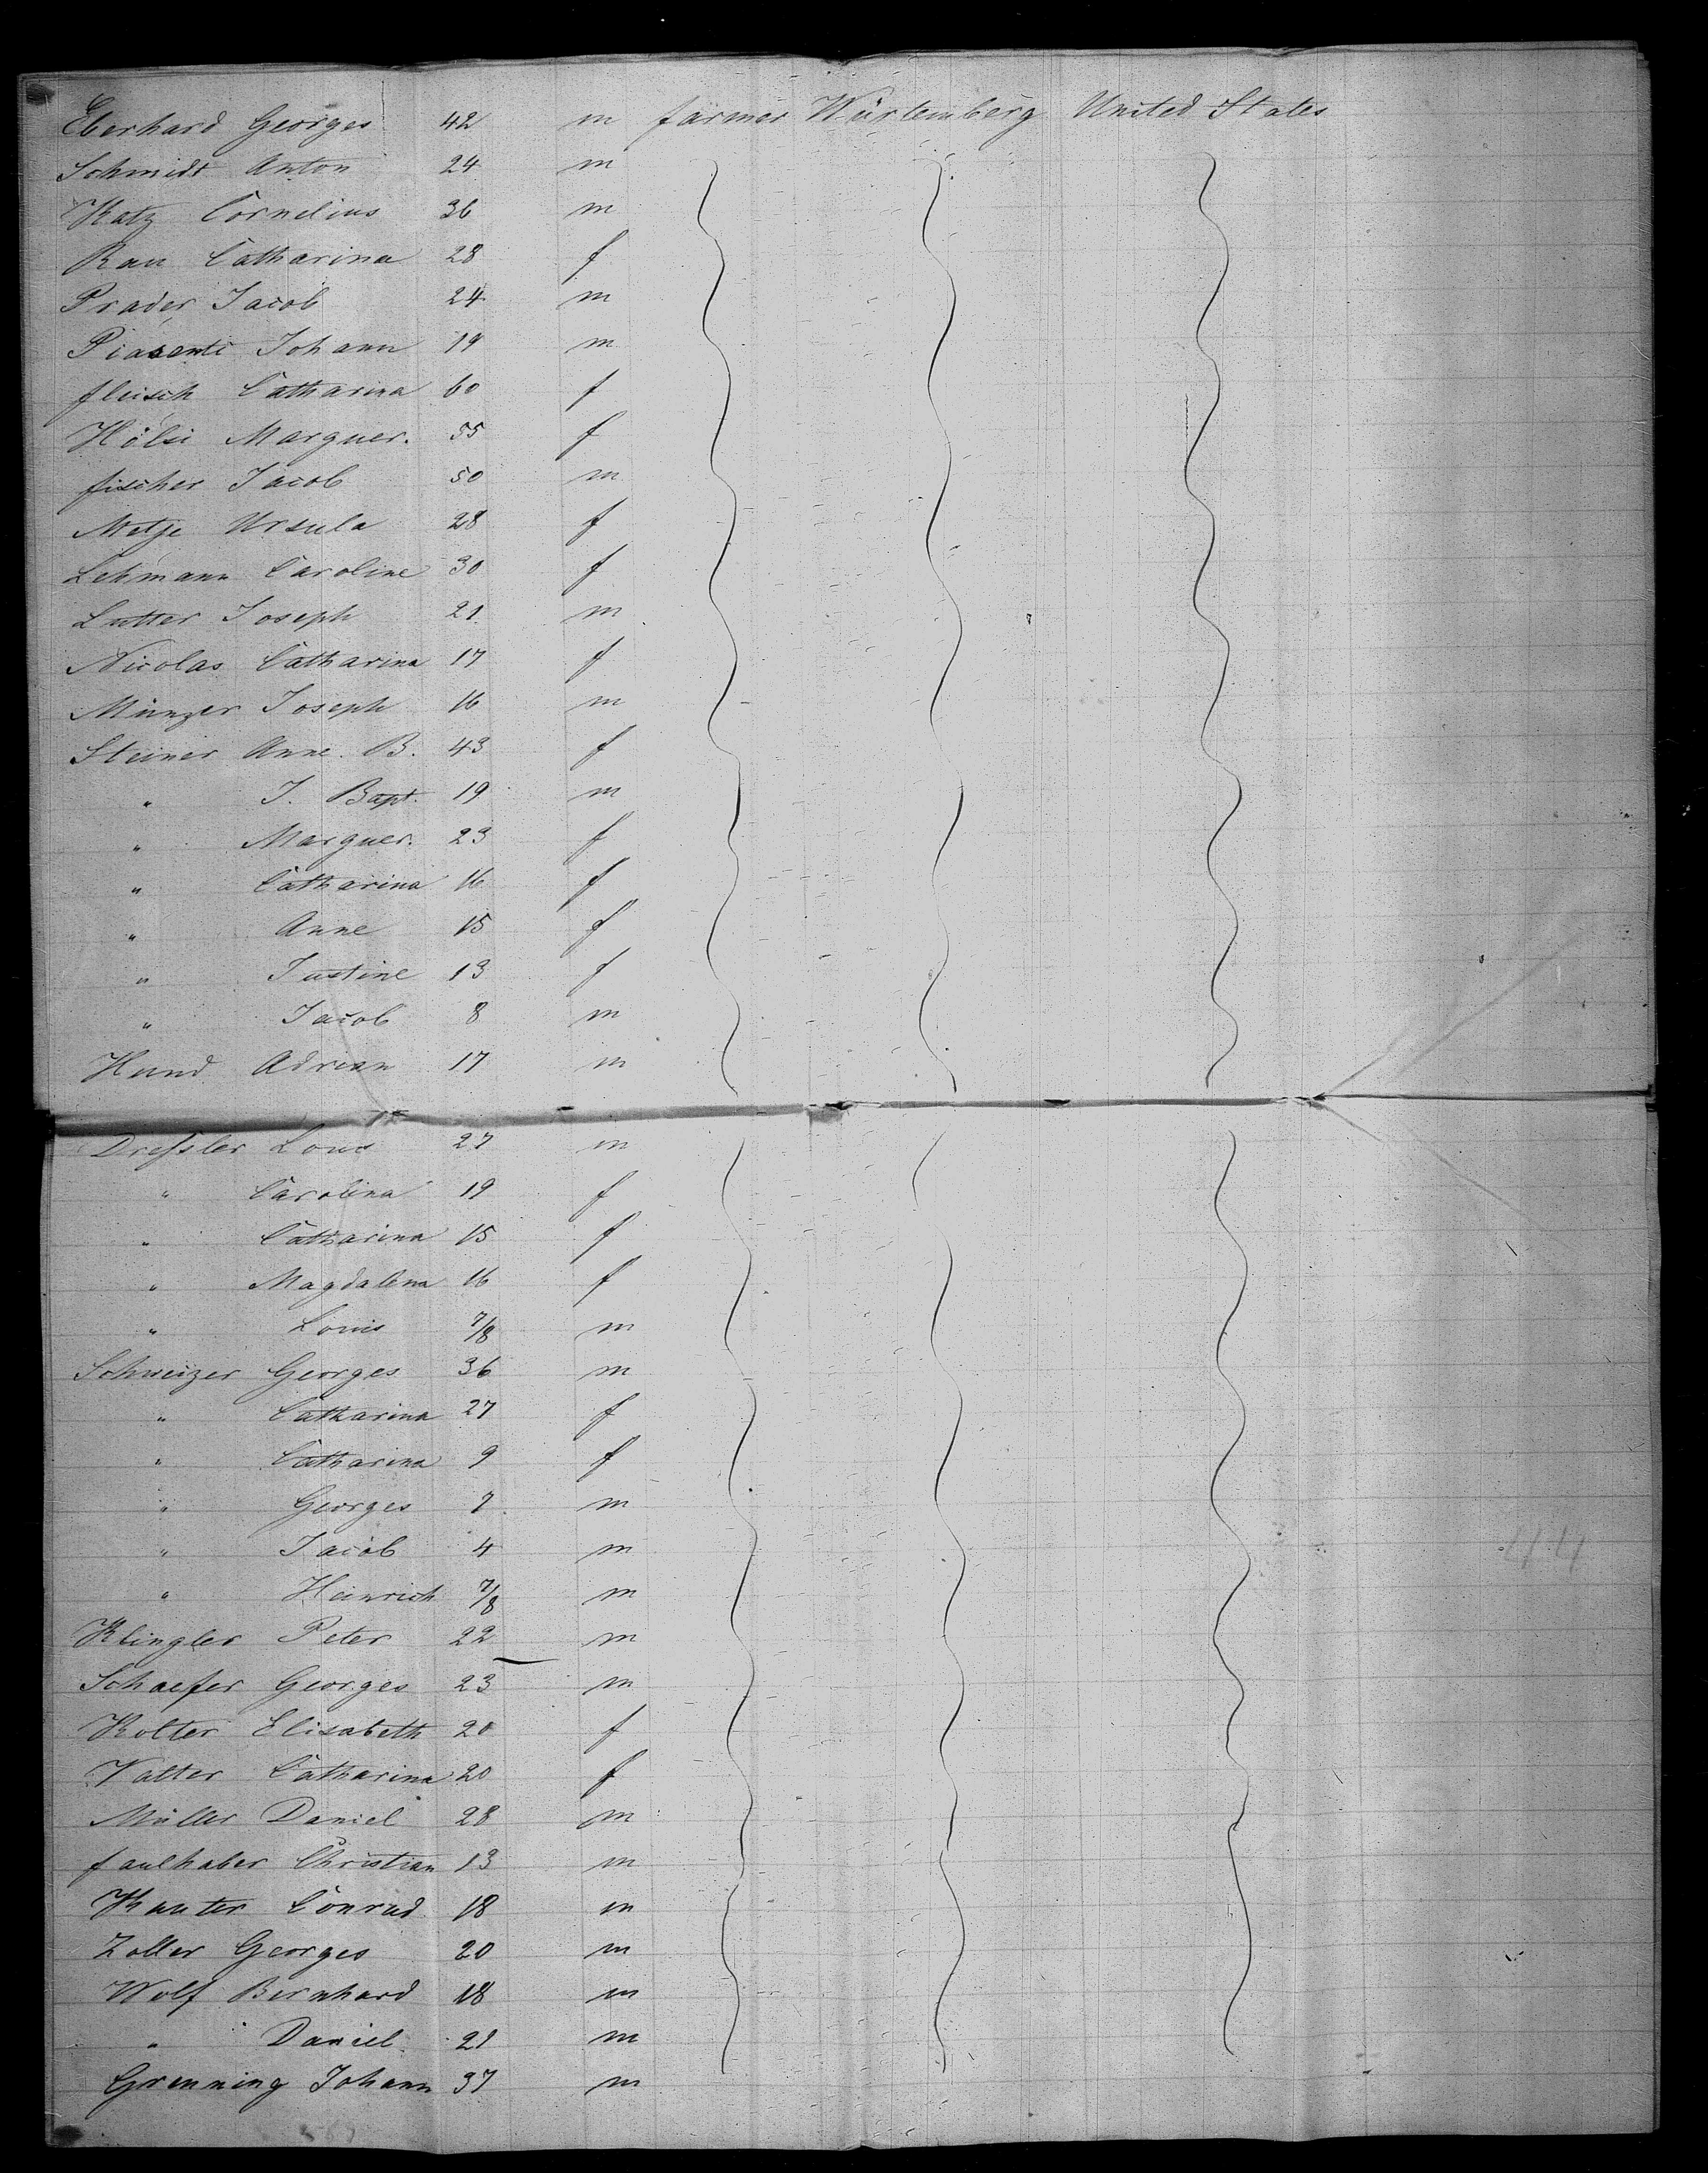 Eberhard Georges 42 m farmer Würtemberg United States
Schmidt Anton 24 m
Katz Cornelius 36 m
Rau Catharina 28 f
Prader Jacob 24 m
Johann 19 m
fleisch Catharina 60 f
Hölsi Marguer. 55 f
fischer Jacob 50 m
Metje Ursula 28 f
Lehmann Caroline 30 f
Lutter Joseph 21 m
Nicolas Catharina 17 f
Münzer Joseph 16 m
Steiner Anne. B. 43 f
" J. Bapt. 19 m
" Marguer. 23 f
" Catharina 16 f
" Anne 15 f
" Justine 13 f
" Jacob 8 m
Hund Adrian 17 m
Dressler Louis 27 m
" Carolina 19 f
" Catharina 15 f
" Magdalena 16 f
" Louis 7/8 m
Schweizer Georges 36 m
" Catharina 27 f
" Catharina 9 f
" Georges 7 m
" Jacob 4 m
" Heinrich 7/8 m
Klingler Peter 22 m
Schaefer Georges 23 m
Kolter Elisabeth 20 f
Vatter Catharina 20 f
Müller Daniel 28 m
faulhaber Christian 13 m
Kauter Conrad 18 m
Zoller Georges 20 m
Wolf Bernhard 18 m
" Daniel 21 m
Grenning Johann 37 m
44